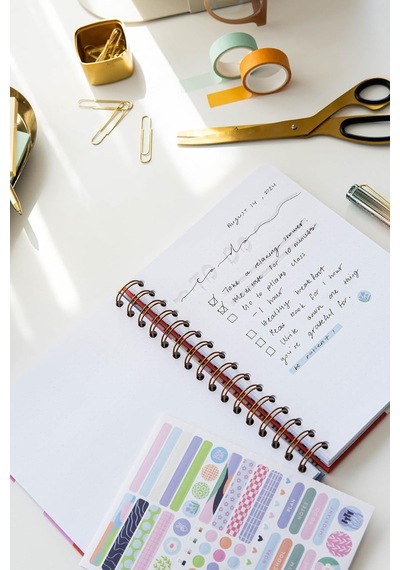 August 14, 2024
to do
Take a relaxing shower
Meditate for 10 minutes
Go to pilates class
- 1 hour
Healthy breakfast
Read book for 1 hour
Write down one thing
you're grateful for
be patient!
PLAN
NOTES
IMPORTANT